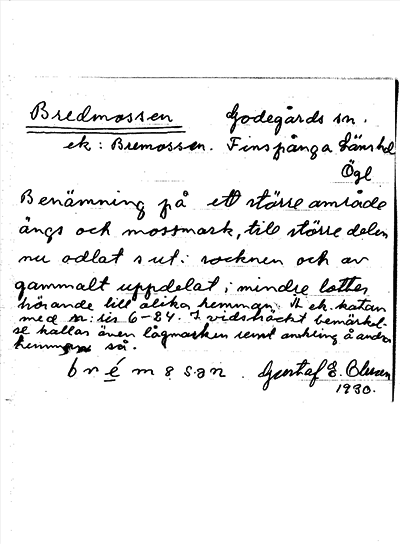 Bredmossen Godegårds sn.
ek: Bremossen. Finspånga länshd
Ögl
Benämning på ett större område
ängs och mossmark, till större delen
nu odlat s ut. i socknen och av
gammalt uppdelat i mindre lotter
hörande till olika hemman. Å ek. kartan
med nr: is 6-84. I vidsträckt bemärkel-
se kallas även lågmarken runt omkring å andra
hemman så.
brémosan. Gustaf E. Olsson
1930.